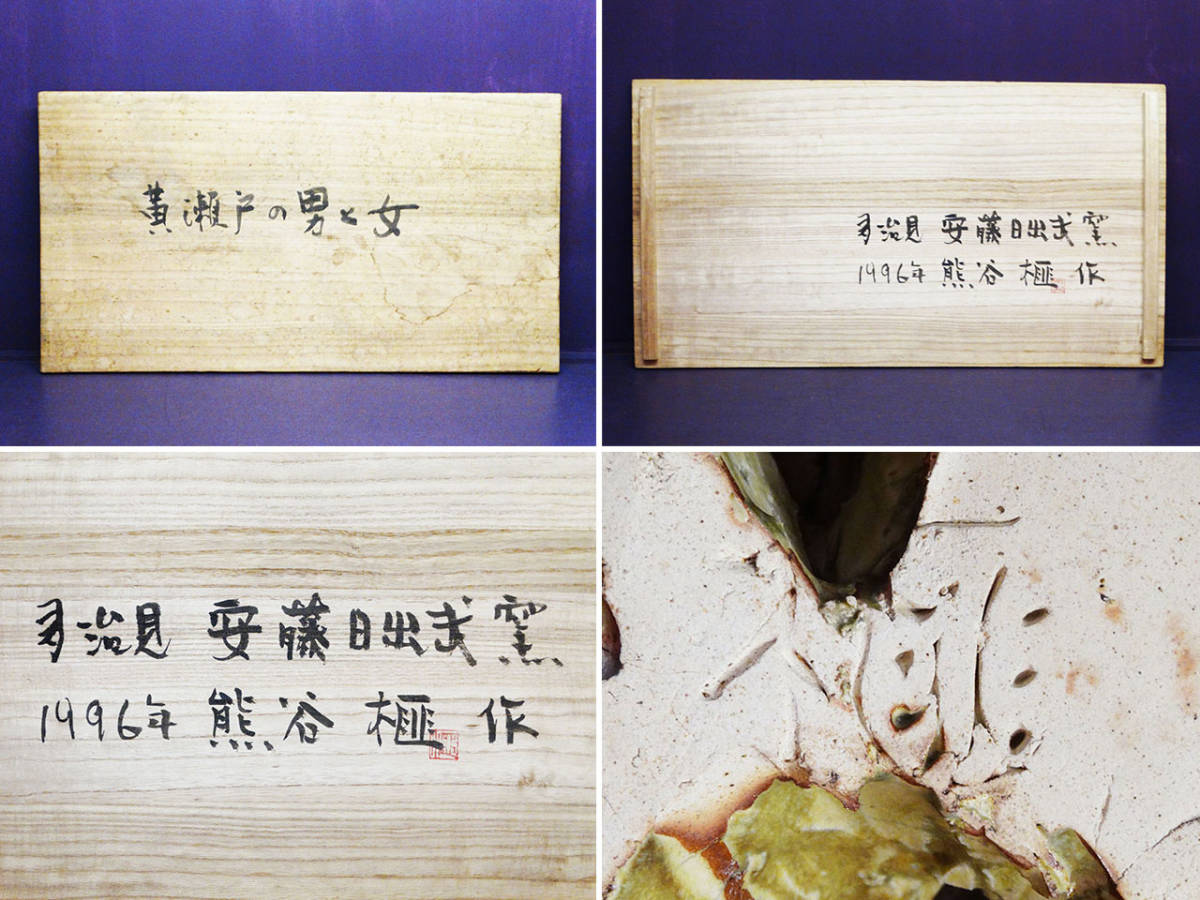 黄瀬戸の男と女
多治見 安藤日出武窯
1996年 熊谷 榧 作
多治見 安藤日出武窯
1996年 熊谷 榧 作